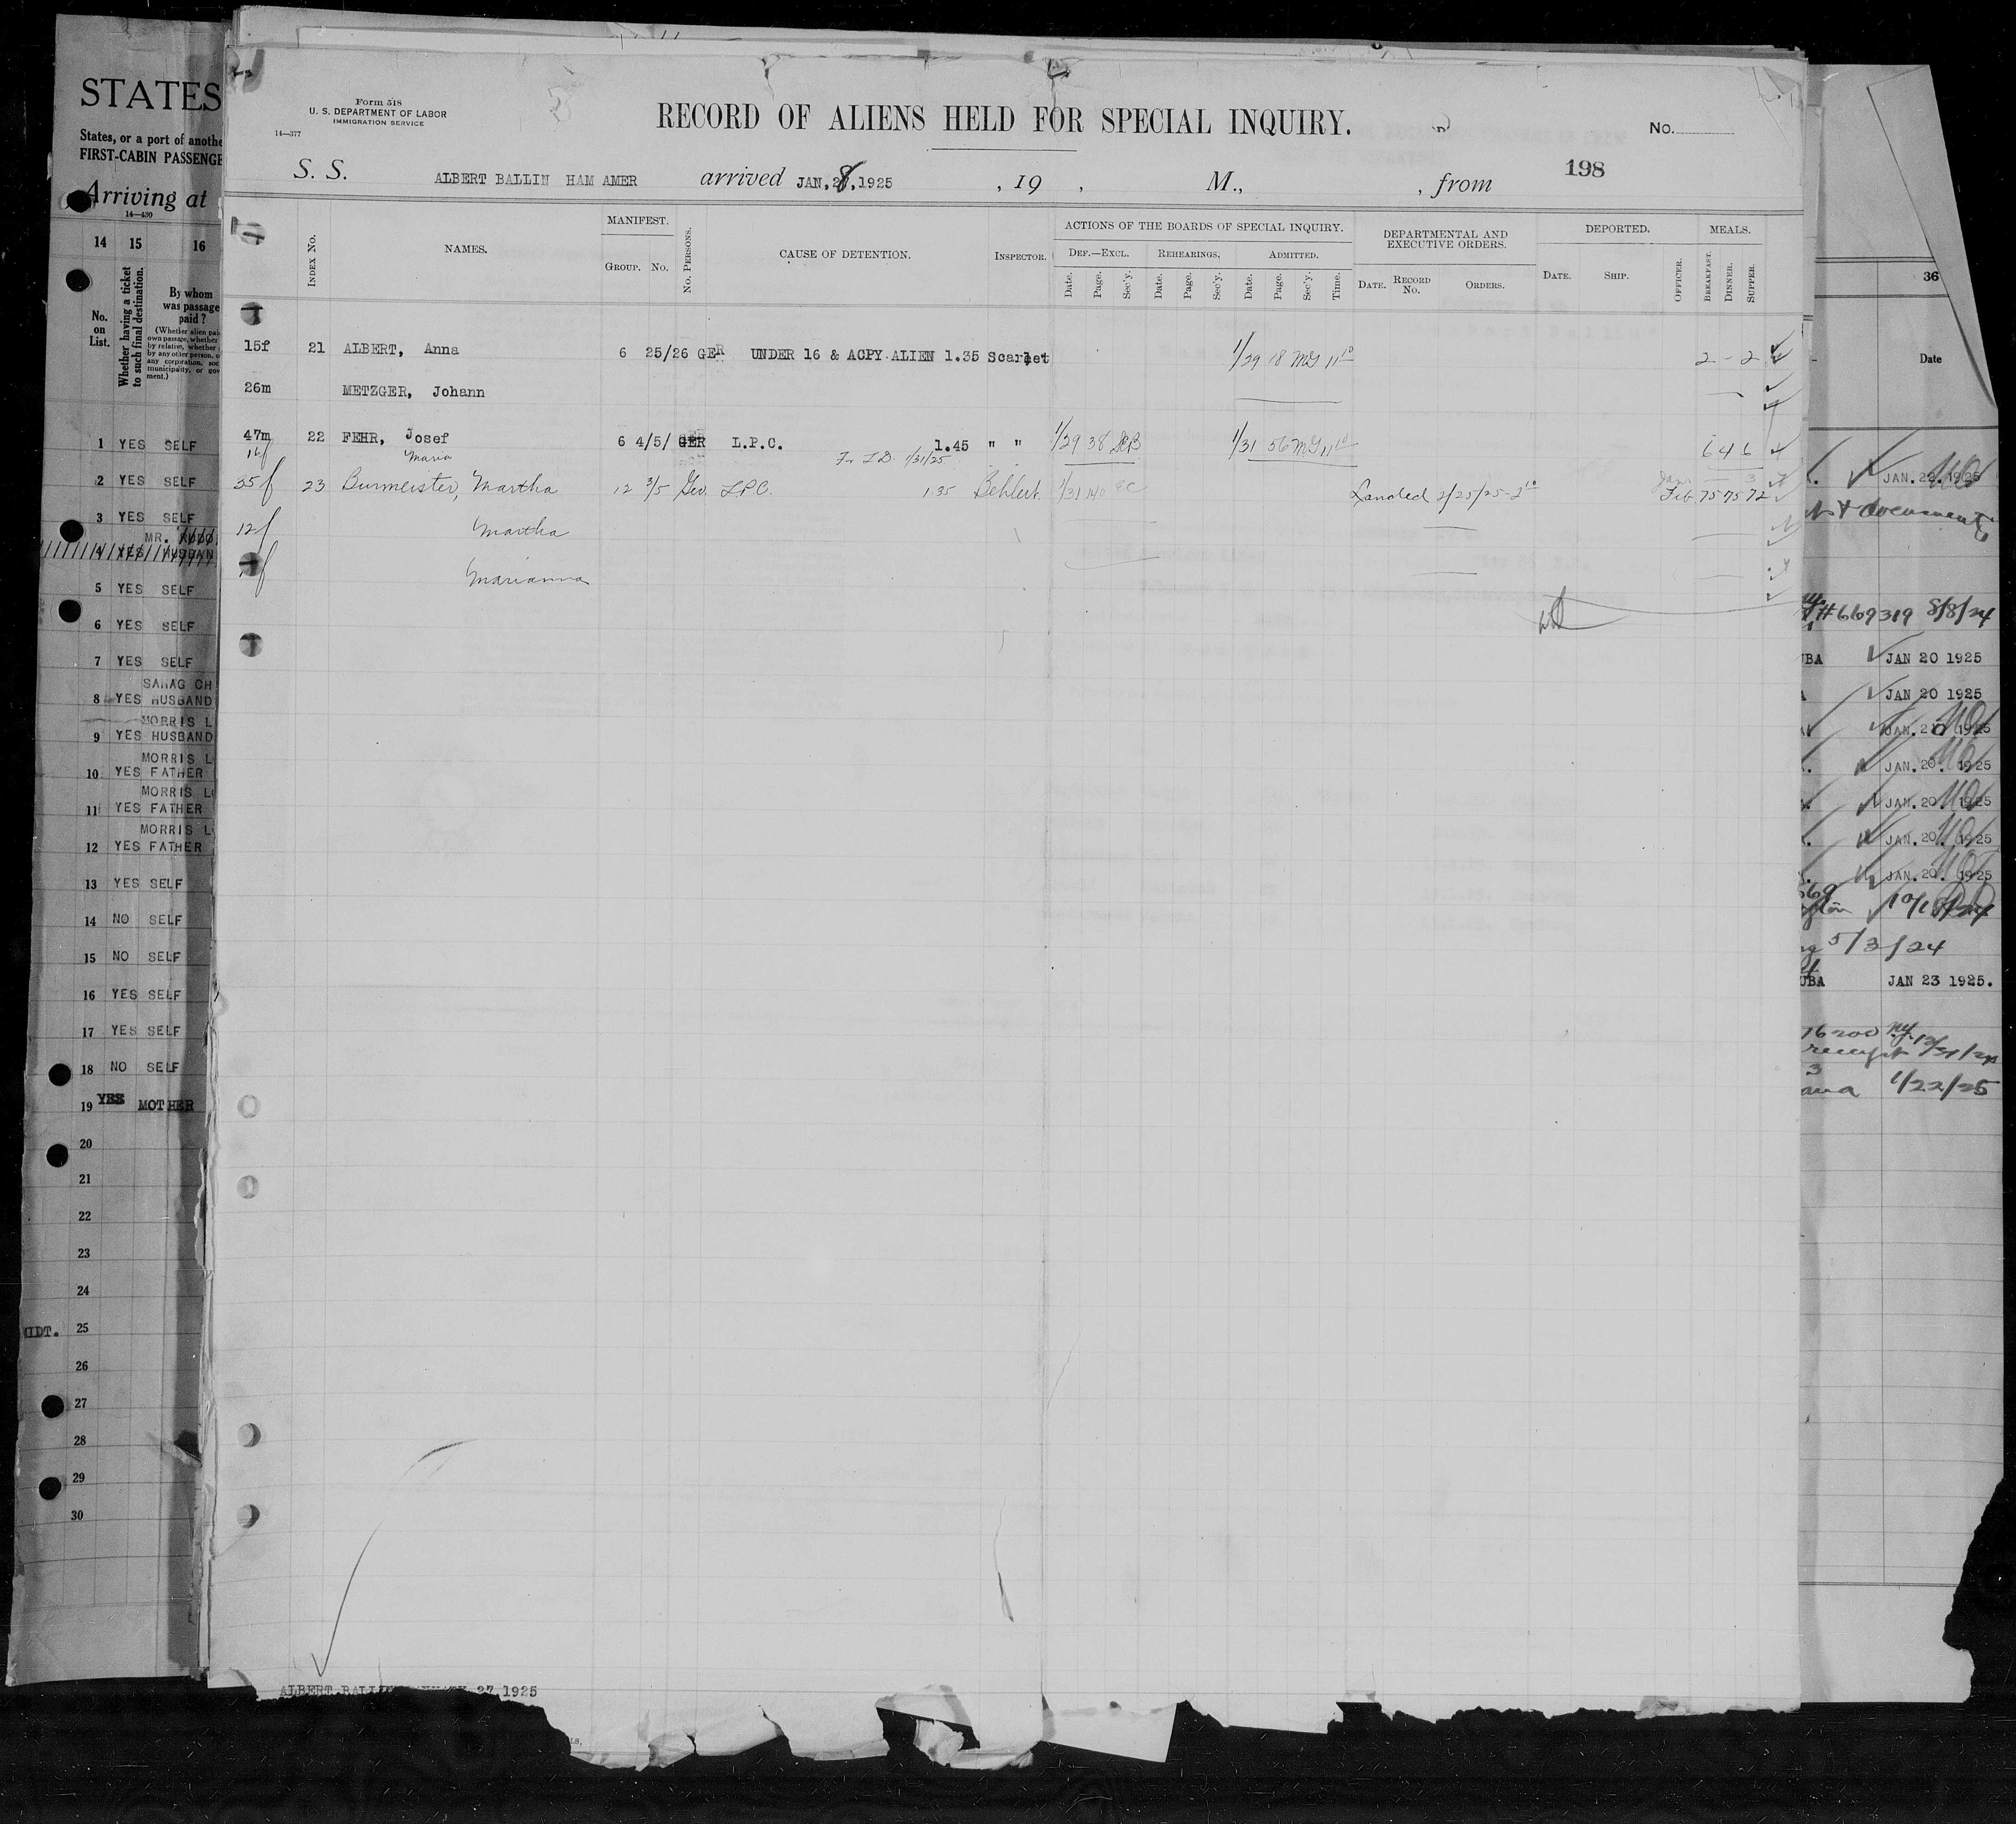 STATES
States, or a port of anothe
FIRST-CABIN PASSENGE
Arriving at
14—430
14 15 16
No. on List.
Whether having a ticket to such final destination.
By whom was passage paid?
(Whether alien pai
own passage, whether
by relative, whether
by any other person, o
any corporation, soc
municipality, or gov
ment.)
1 YES SELF
2 YES SELF
3 YES SELF
MR.
4 YES HUSBAN
5 YES SELF
6 YES SELF
7 YES SELF
8 YES HUSBAND
MORRIS L
9 YES HUSBAND
MORRIS L
10 YES FATHER
MORRIS L
11 YES FATHER
MORRIS L
12 YES FATHER
13 YES SELF
14 NO SELF
15 NO SELF
16 YES SELF
17 YES SELF
18 NO SELF
19 YES MOTHER
20
21
22
23
24
MIDT. 25
26
27
28
29
30
Form 518
U. S. DEPARTMENT OF LABOR
IMMIGRATION SERVICE
14—377
RECORD OF ALIENS HELD FOR SPECIAL INQUIRY.
No.
198
S. S. ALBERT BALLIN HAM AMER arrived JAN, 28, 1925 , 19 , M., , from
INDEX NO. NAMES. MANIFEST. GROUP. NO. NO. PERSONS. CAUSE OF DETENTION. INSPECTOR.
ACTIONS OF THE BOARDS OF SPECIAL INQUIRY.
DEF.—EXCL. REHEARINGS. ADMITTED.
Date. Page. Sec'y. Date. Page. Sec'y. Date. Page. Sec'y. Time.
DEPARTMENTAL AND EXECUTIVE ORDERS.
DATE. RECORD NO. ORDERS.
DEPORTED.
DATE. SHIP. OFFICER.
MEALS.
BREAKFAST. DINNER. SUPPER.
15f 21 ALBERT, Anna 6 25/26 GER UNDER 16 & ACPY ALIEN 1.35 Scarlet 1/29 18 MG 11 10 2 - 2
26m METZGER, Johann
47m 22 FEHR, Josef 6 4/5/ GER L.P.C. 1.45 " " 1/29 38 1/31 56 MG 11 10 6 4 6
16f Maria 1/31/25
35f 23 Burmeister, Martha 12 3/5 Ger. LPC. 1.35 Behlert. 1/31 Landed 2/25/25-2 10 Jan. — 3
Feb 75 75 72
12f Martha
f Marianna
36
Date
JAN. 22. 1925
& document
#669319 8/8/24
UBA JAN 20 1925
JAN 20 1925
JAN. 20. 1925
JAN. 20. 1925
JAN. 20. 1925
JAN. 20. 1925
JAN. 20. 1925
5/3/24
UBA JAN 23 1925.
receipt
ana 1/22/25
ALBERT BALLIN 27 1925